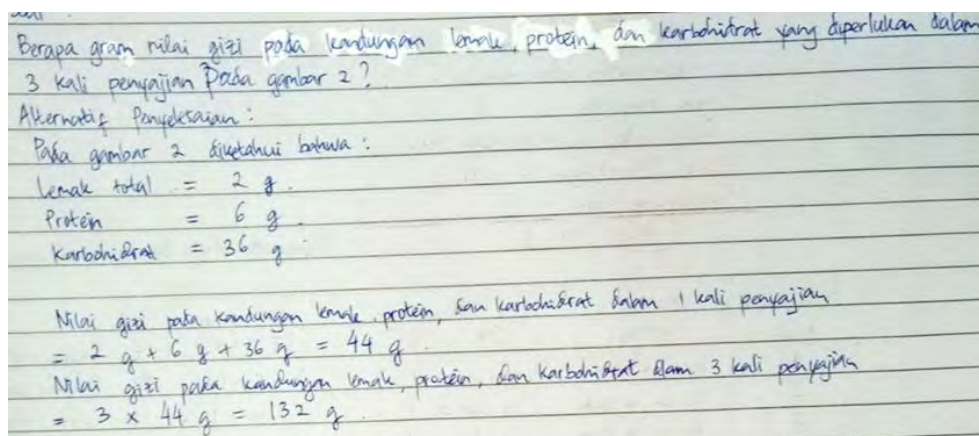 Berapa gram nilai gizi pada kandungan lemak, protein, dan karbohidrat yang diperlukan dalam
3 kali penyajian pada gambar 2?
Alternatif Penyelesaian:
Pada gambar 2 diketahui bahwa:
Lemak total = 2 g.
Protein = 6 g.
Karbohidrat = 36 g
Nilai gizi pada kandungan lemak, protein, dan karbohidrat dalam 1 kali penyajian
= 2 g + 6 g + 36 g = 44 g.
Nilai gizi pada kandungan lemak, protein, dan karbohidrat dlam 3 kali penyajian
= 3 x 44 g = 132 g.